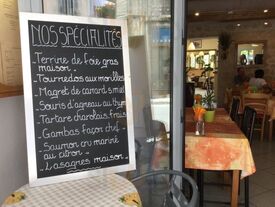 NOS SPÉCIALITÉS
- Terrine de foie gras
maison
- Tournedos aux morilles
- Magret de canard s miel
- Souris d'agneau au thym
- Tartare charolais frais
- Gambas façon chef
- Saumon cru mariné
au citron
- Lasagnes maison